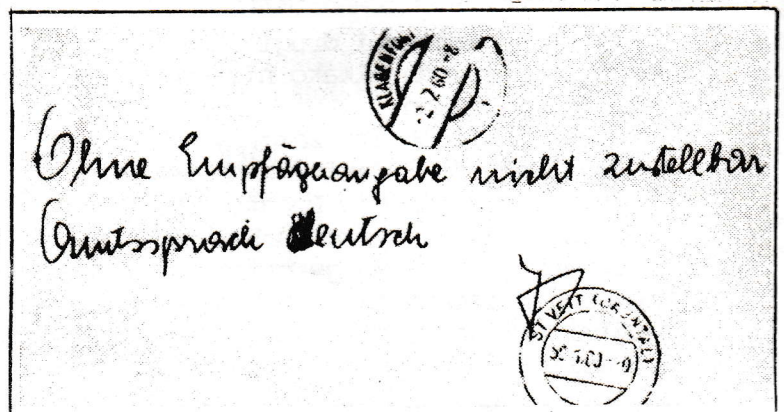 KLAGENFURT
2.2.60-8
Ohne Empfägerangabe nicht zustellbar
Amtssprach deutsch
ST. VEIT